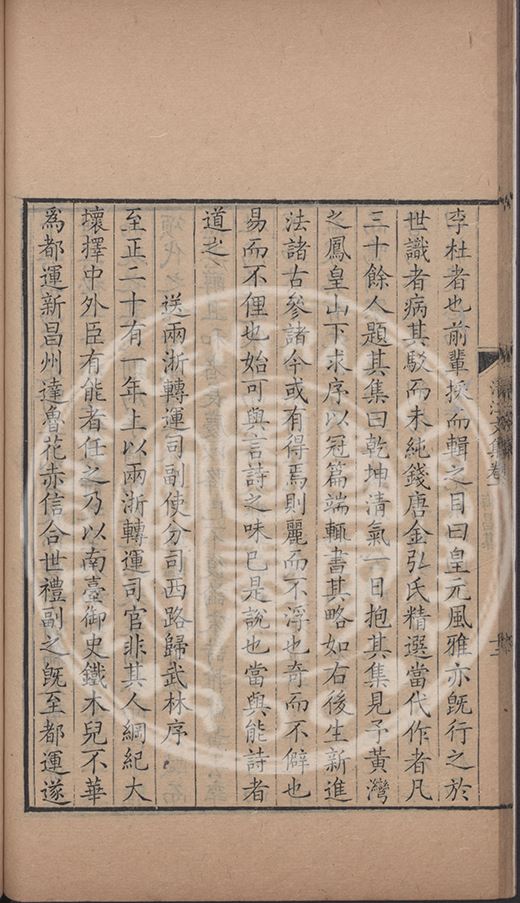 李杜者也前輩採而輯之目曰皇元風雅亦旣行之於
世識者病其駁而未純錢唐金弘氏精選當代作者凡
三十餘人題其集曰乾坤清氣一日抱其集見予黃灣
之鳳皇山下求序以冠篇端輒書其略如右後生新進
法諸古參諸今或有得焉則麗而不浮也奇而不僻也
易而不俚也始可與言詩之味巳是說也當與能詩者
道之
送兩淛轉運司副使分司西路歸武林序
至正二十有一年上以兩淛轉運司官非其人綱紀大
壞擇中外臣有能者任之乃以南臺御史鐵木兒不華
爲都運新昌州達魯花赤信合世禮副之旣至都運遂